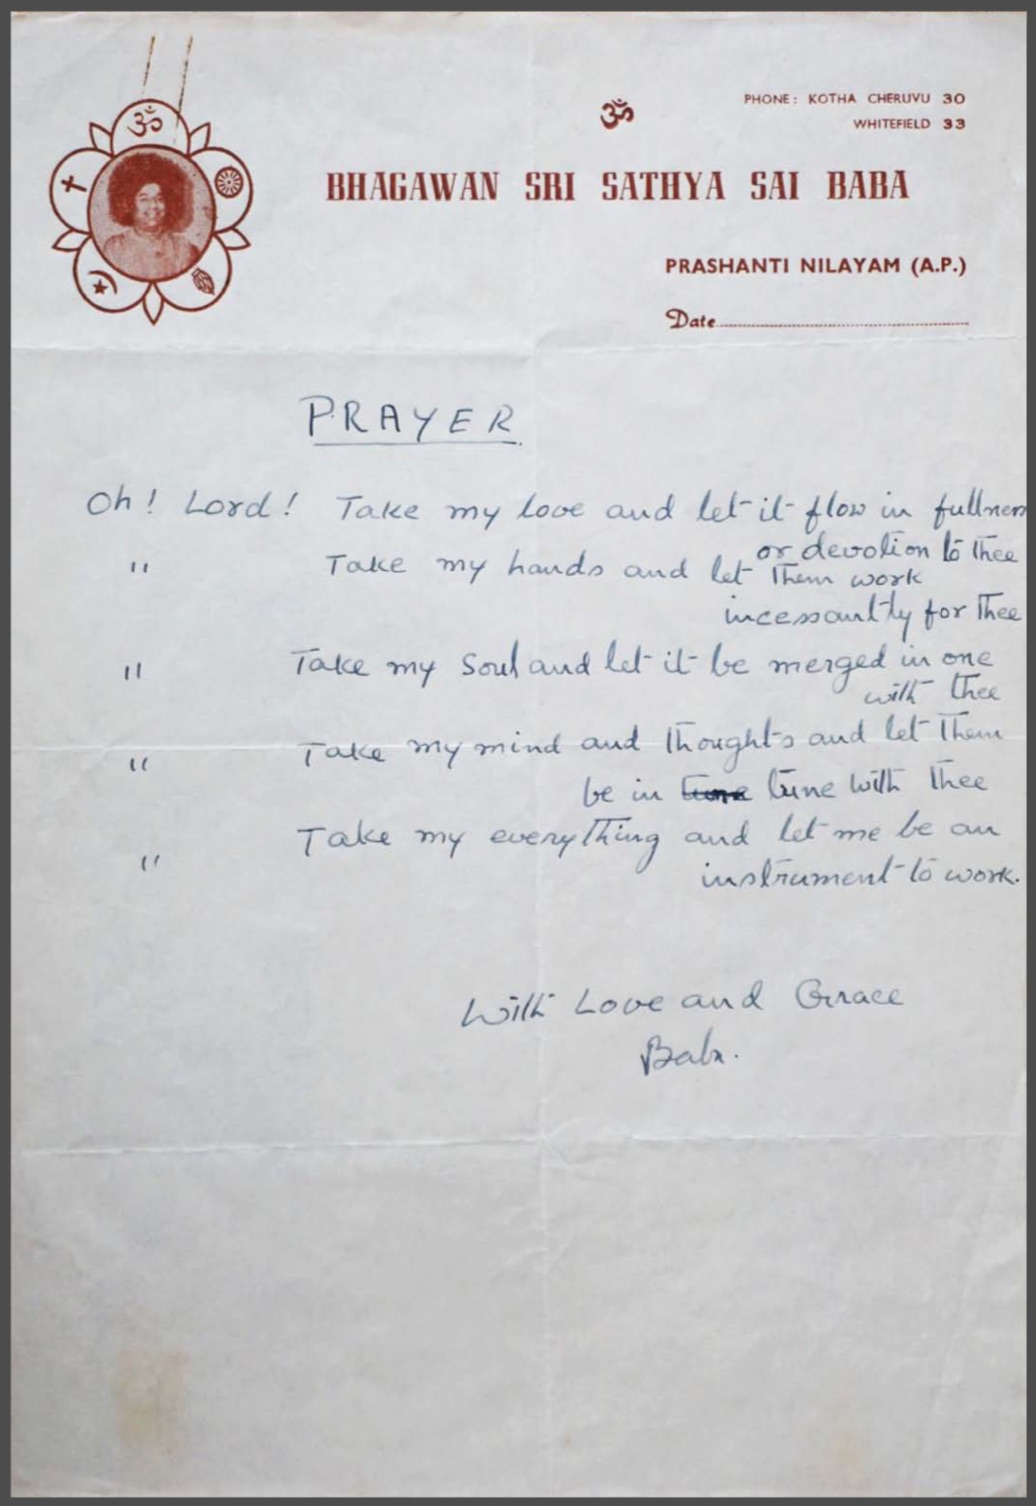 ॐ
ॐ
PHONE: KOTHA CHERUVU 30
WHITEFIELD 33
BHAGAWAN SRI SATHYA SAI BABA
PRASHANTI NILAYAM (A.P.)
Date
PRAYER
Oh! Lord! Take my love and let it flow in fullness
or devotion to Thee
" Take my hands and let Them work
incessantly for Thee
" Take my Soul and let it be merged in one
with Thee
" Take my mind and Thoughts and let Them
be in tune tune with Thee
" Take my everything and let me be an
instrument to work.
With Love and Grace
Baba.